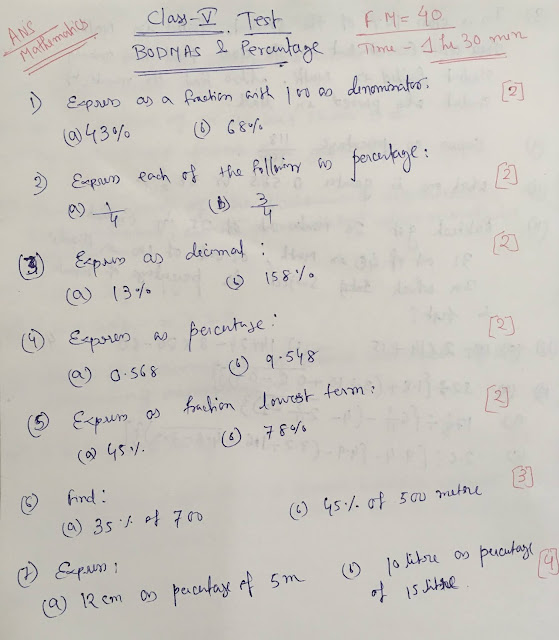 ANS
Mathematics
Class-V Test
BODMAS & Percentage
F.M= 40
Time - 1 hr 30 min
1) Express as a fraction with 100 as denominator. [2]
(a) 43% (b) 68%
2) Express each of the following as percentage: [2]
(a) 1/4 (b) 3/4
(3) Express as decimal: [2]
(a) 13% (b) 158%
(4) Express as percentage: [2]
(a) 0.568 (b) 9.548
(5) Express as fraction lowest term: [2]
(a) 45% (b) 78%
(6) find: [3]
(a) 35% of 700 (b) 45% of 500 metre
(7) Express: [4]
(a) 12 cm as percentage of 5m (b) 10 litre as percentage
of 15 litre.